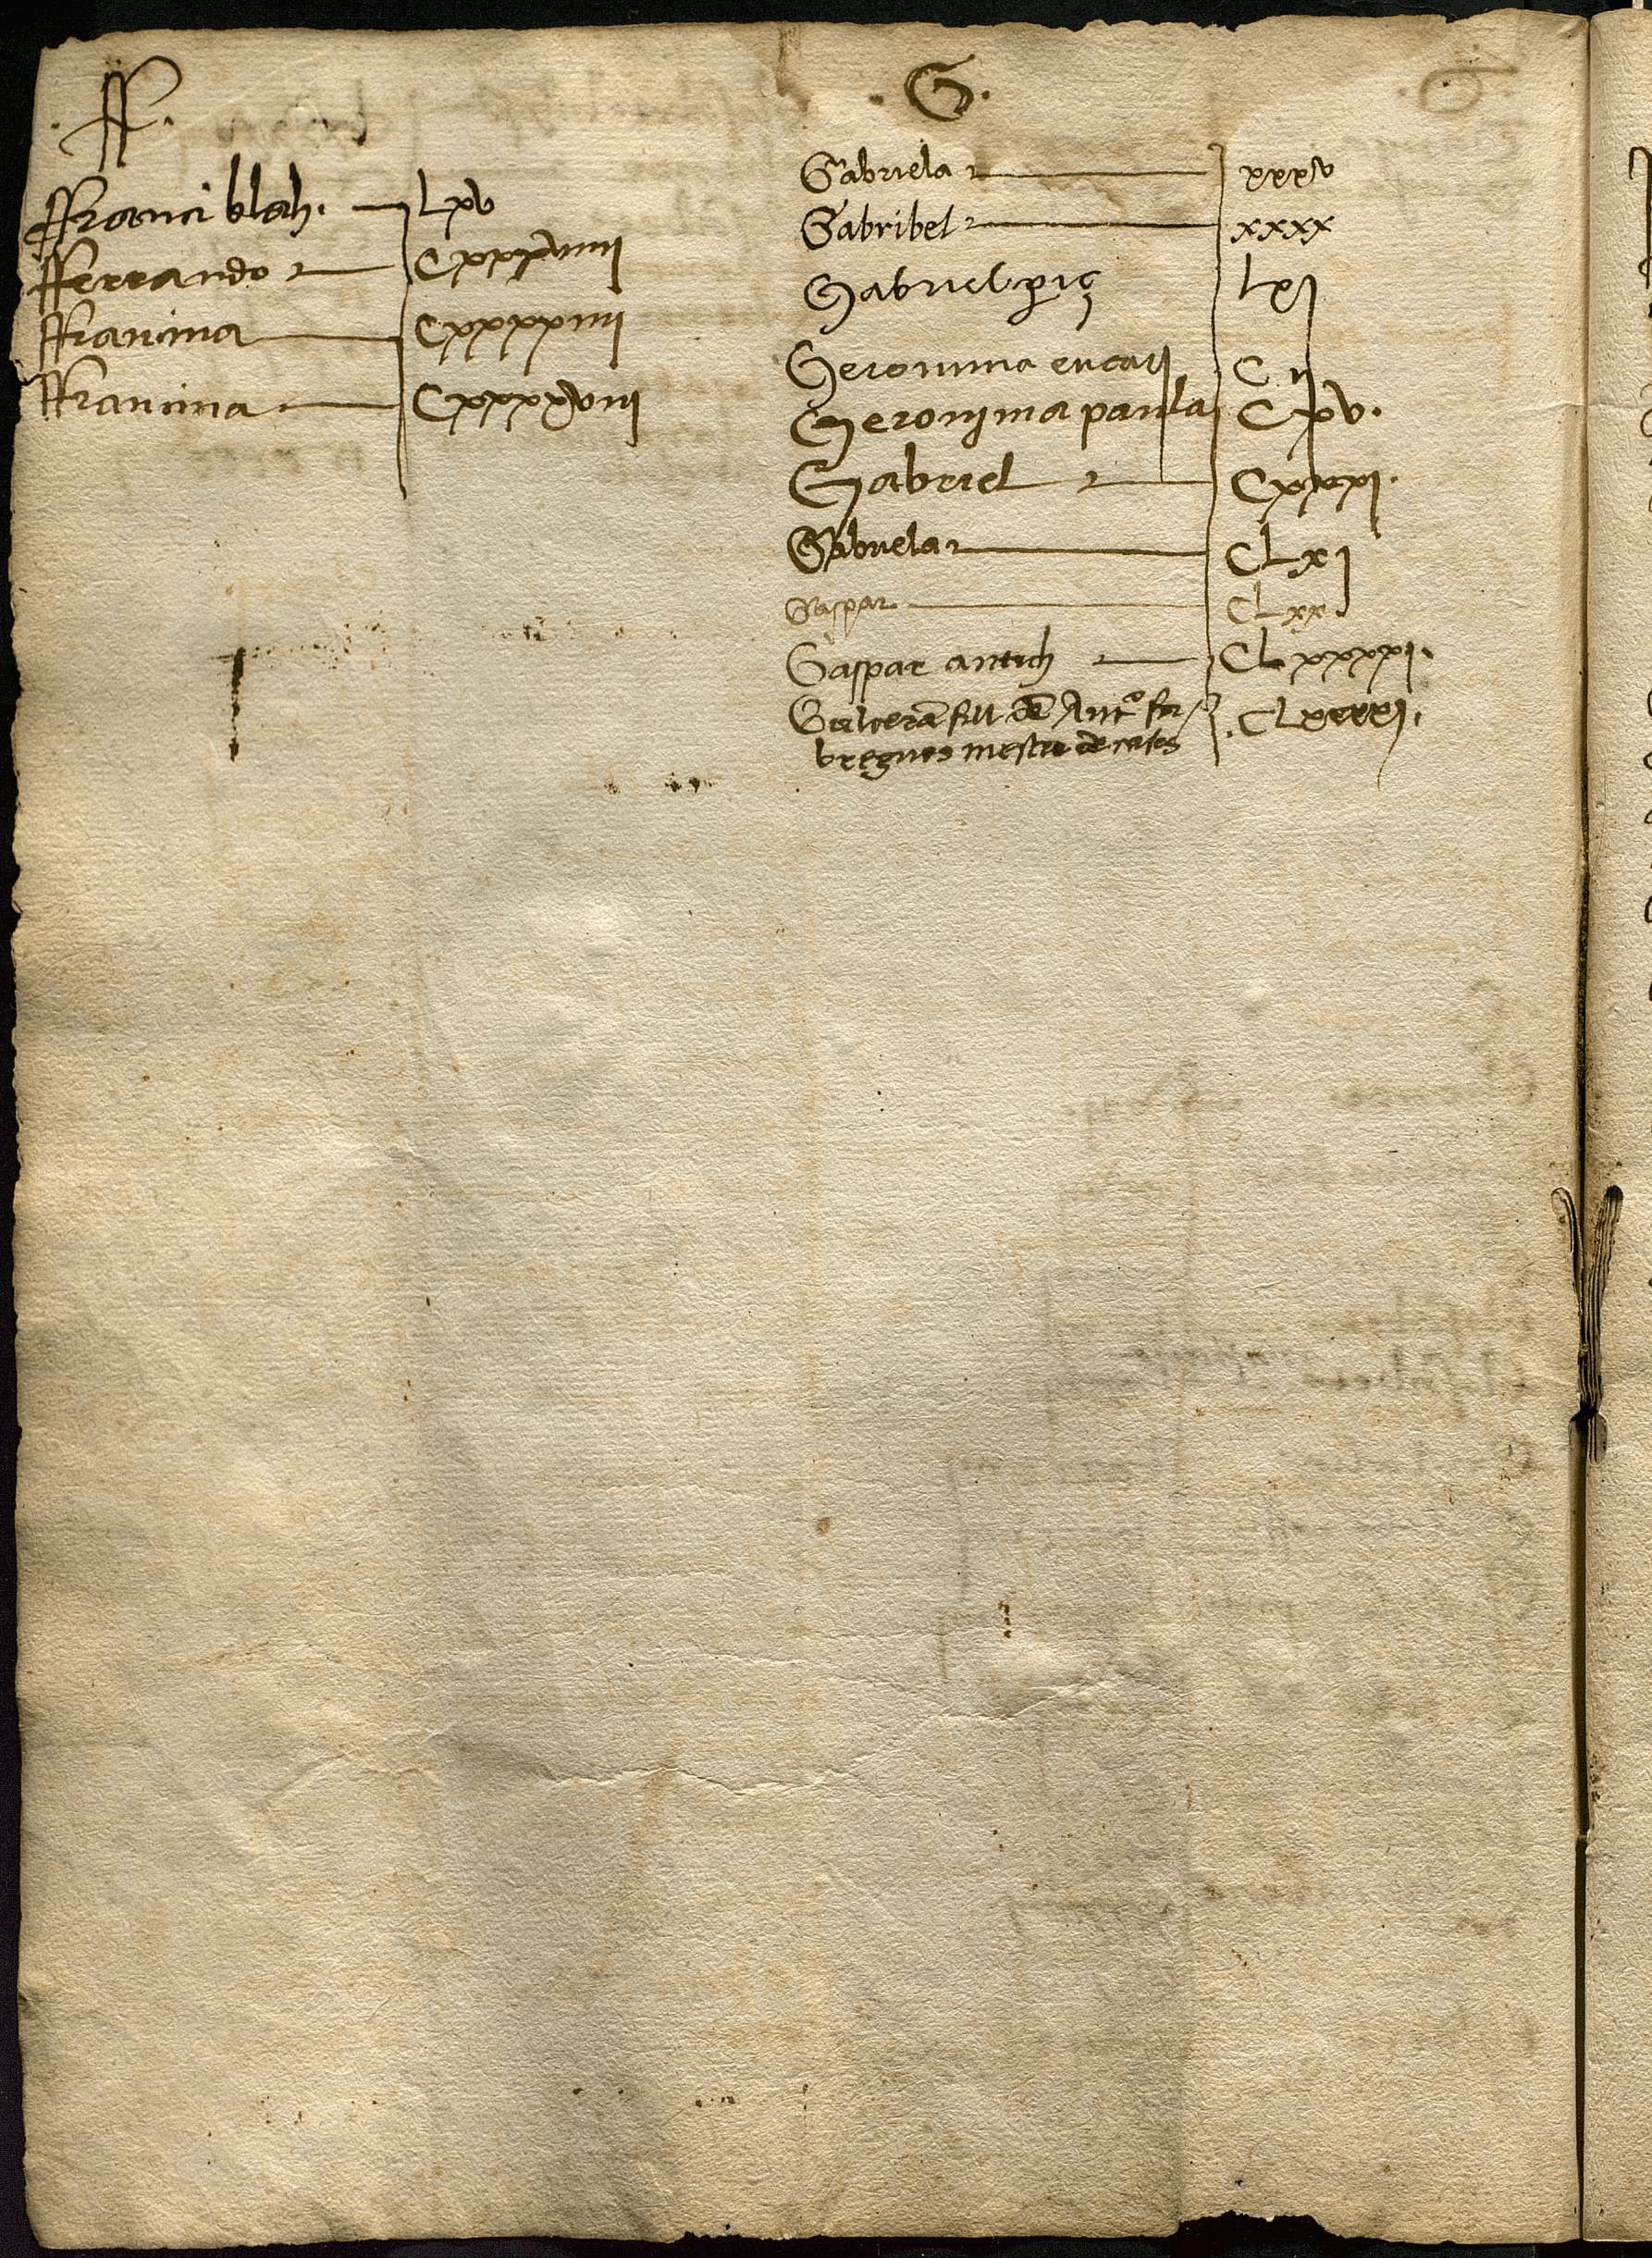 .ff.
ffranci blah. Lxv
fferrando Cxxxviiii
ffrancina Cxxxxiiii
ffrancina Cxxxxviii
.G.
Gabriela xxxv
Gabribel xxxx
Gabriel LxJ
Geronima Cij
Geronjma paula Cxv.
Gabriel Cxxxi.
Gabriela CLxi
Gaspar CLxx
Gaspar antich CLxxxxi.
Galcerā fill de Antº fa
bregues mestre de cases .CLxxxxj.